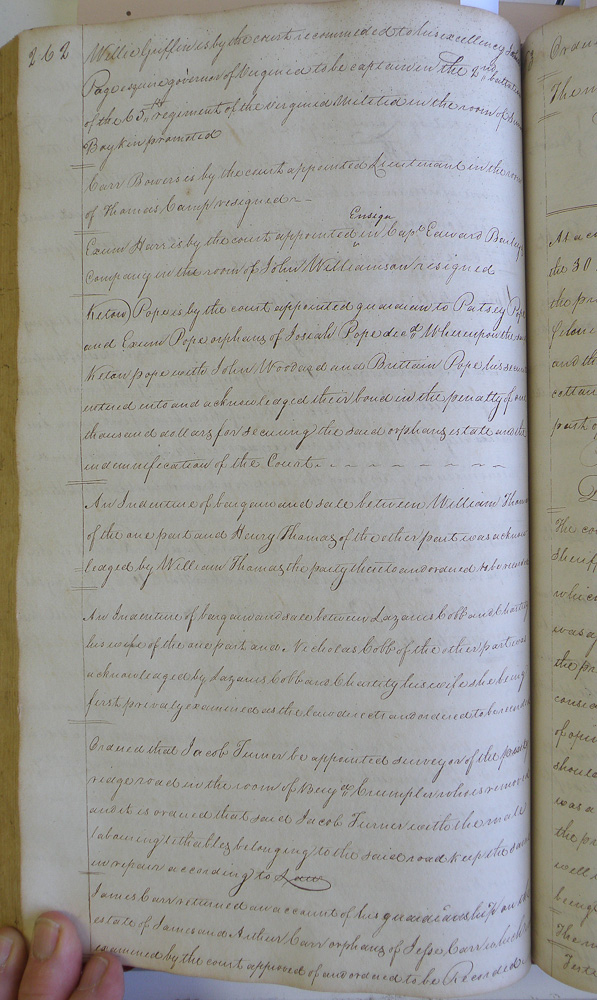 262
Willie Griffin is by the court recommended to his excellency John
Page esquire governor of Virginia to be captain in the 2nd battalion
of the 65th regiment of the Virginia Militia in the room of
Boykin promoted
Carr Bowers is by the court appointed Lieutenant in the room
of Thomas Camp resigned
Ensign
Exum Harris by the court appointed in Capt. Edward Bailey
Company in the room of John Williamson resigned
Kelow Pope is by the court appointed guardian to Patsey Pope
and Exum Pope orphans of Josiah Pope decd Whereupon the said
Kelow pope with John Woodard and Brittain Pope his securi
entered into and acknowledged their bond in the penalty of one
thousand dollars for securing the said orphans estate and the
indemnification of the Court
An Indenture of bargain and sale between William Thomas
of the one part and Henry Thomas of the other part was acknow
ledged by William Thomas the party thereto and ordered to be recorded
An Indenture of bargain and sale between Lazarus Cobb and Charity
his wife of the one part and Nicholas Cobb of the other part was
acknowledged by Lazarus Cobb and Charity his wife she being
first privaly examined as the law directs and ordered to be recorded
Ordered that Jacob Turner be appointed surveyor of the
ridge road in the room of Benja Crumpler who is removed
and it is ordered that said Jacob Turner with the male
labouring tithables belonging to the said road keep the same
in repair according to Law
James Carr returned an account of his guardianship on the
estate of James and Arthur Carr orphans of Jesse Carr which
examined by the court approved of and ordered to be Recorded
Order
The
At a c
the 30
the pr
and th
cotton
part of
The co
Sheriff
which
was a
the pr
consid
of opin
should
was a
the pr
well
being
The
Test